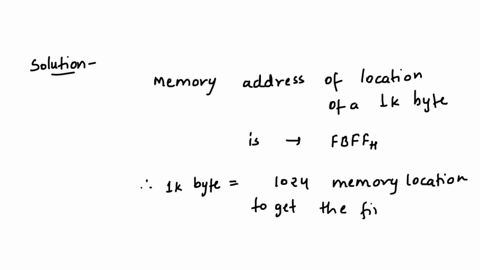 Solution-
memory address of location
of a 1k byte
is → FBFFH
∴ 1k byte = 1024 memory location
to get the fi